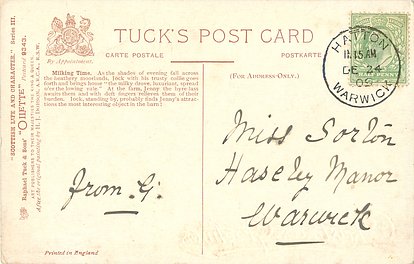 TUCK'S POST CARD
CARTE POSTALE
POSTKARTE
By Appointment.
(FOR ADDRESS ONLY.)
Milking Time. As the shades of evening fall across
the heathery moorlands, Jock with his trusty collie goes
forth and brings home "the milky droves, luxuriant, spread
o'er the lowing vale." At the farm, Jenny the byre lass
awaits them and with deft fingers relieves them of their
burden. Jock, standing by, probably finds Jenny's attrac-
tions the most interesting object in the barn!
"SCOTTISH LIFE AND CHARACTER." Series III.
Raphael Tuck & Sons' "OILETTE" Postcard 9243.
ART PUBLISHERS TO THEIR MAJESTIES THE KING & QUEEN.
After the original painting by H. J. Dobson, A.R.C.A., R.S.W.
HATTON
11.15 AM
DE 24
09
WARWICK
from G.
Miss Sorton
Haseley Manor
Warwick
Printed in England